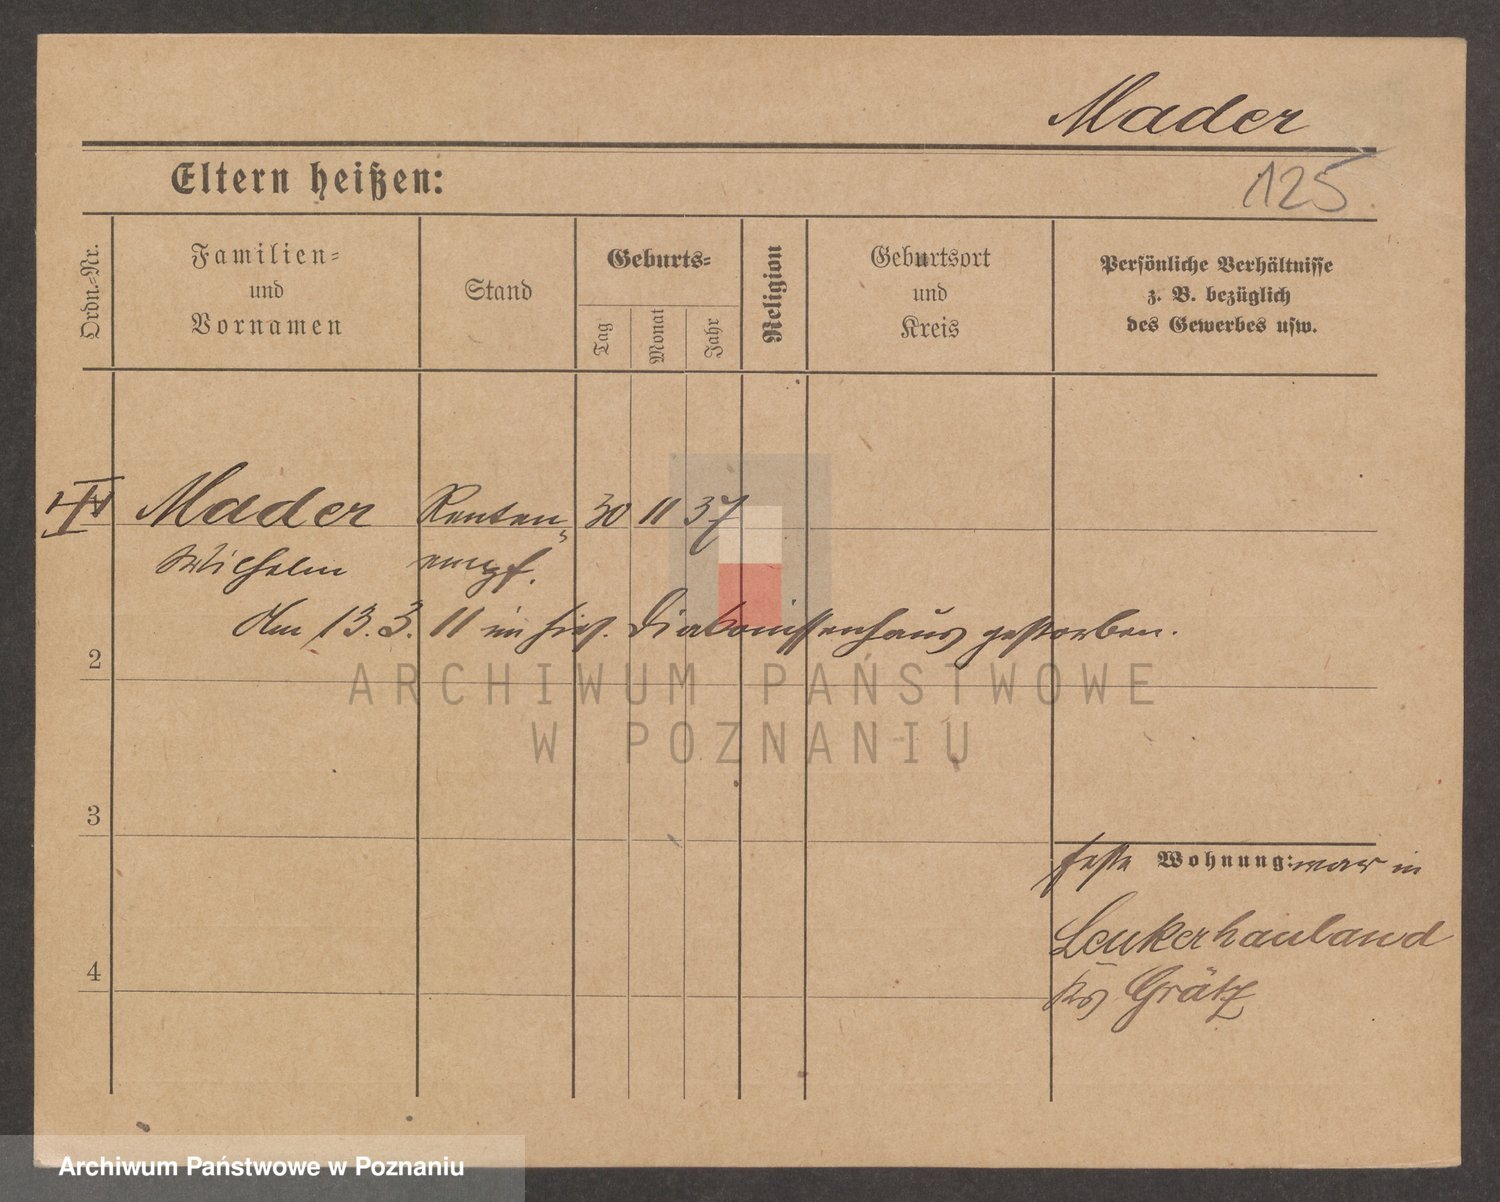 Mader
Eltern heißen:
125.
Ordn.-Nr.
Familien-
und
Vornamen
Stand
Geburts-
Tag
Monat
Jahr
Religion
Geburtsort
und
Kreis
Persönliche Verhältnisse
z. B. bezüglich
des Gewerbes usw.
Mader Renten- 30 11 37
Wilhelm empf.
Am 13. 3. 11 im hies. Diakonissenhaus gestorben.
2
ARCHIWUM PAŃSTWOWE
W POZNANIU
3
feste Wohnung: war in
Leukerhauland
Krs Grätz
4
Archiwum Państwowe w Poznaniu